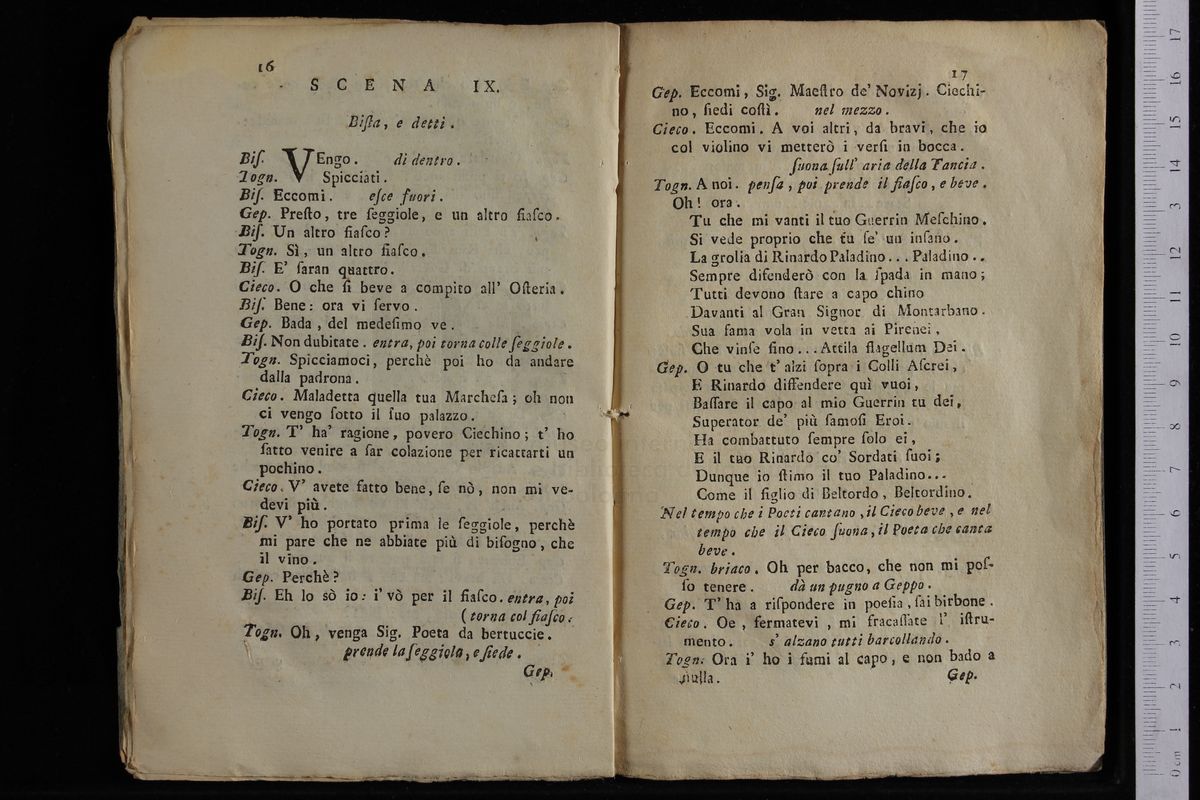 16
SCENA IX.
Biſta, e detti.
Biſ. VEngo. di dentro.
Togn. Spicciati.
Biſ. Eccomi. eſce fuori.
Gep. Preſto, tre ſeggiole, e un altro fiaſco.
Biſ. Un altro fiaſco?
Togn. Sì, un altro fiaſco.
Biſ. E' ſaran quattro.
Cieco. O che ſi beve a compito all' Oſteria.
Biſ. Bene: ora vi ſervo.
Gep. Bada, del medeſimo ve.
Biſ. Non dubitate. entra, poi torna colle ſeggiole.
Togn. Spicciamoci, perchè poi ho da andare
dalla padrona.
Cieco. Maladetta quella tua Marcheſa; oh non
ci vengo ſotto il ſuo palazzo.
Togn. T' ha' ragione, povero Ciechino; t' ho
fatto venire a far colazione per ricattarti un
pochino.
Cieco. V' avete fatto bene, ſe nò, non mi ve-
devi più.
Biſ. V' ho portato prima le ſeggiole, perchè
mi pare che ne abbiate più di biſogno, che
il vino.
Gep. Perchè?
Biſ. Eh lo sò io: i' vò per il fiaſco. entra, poi
(torna col fiaſco.
Togn. Oh, venga Sig. Poeta da bertuccie.
prende la ſeggiola, e ſiede.
Gep.
17
Gep. Eccomi, Sig. Maeſtro de' Novizj. Ciechi-
no, ſiedi coſtì. nel mezzo.
Cieco. Eccomi. A voi altri, da bravi, che io
col violino vi metterò i verſi in bocca.
ſuona ſull' aria della Tancia.
Togn. A noi. penſa, poi prende il fiaſco, e beve.
Oh! ora.
Tu che mi vanti il tuo Guerrin Meſchino.
Si vede proprio che tu ſe' un inſano.
La grolia di Rinardo Paladino... Paladino..
Sempre difenderò con la ſpada in mano;
Tutti devono ſtare a capo chino
Davanti al Gran Signor di Montarbano.
Sua fama vola in vetta ai Pirenei,
Che vinſe fino... Attila flagellum Dei.
Gep. O tu che t' alzi ſopra i Colli Aſcrei,
E Rinardo diffendere quì vuoi,
Baſſare il capo al mio Guerrin tu dei,
Superator de' più famoſi Eroi.
Ha combattuto ſempre ſolo ei,
E il tuo Rinardo co' Sordati ſuoi;
Dunque io ſtimo il tuo Paladino...
Come il figlio di Beltordo, Beltordino.
Nel tempo che i Poeti cantano, il Cieco beve, e nel
tempo che il Cieco ſuona, il Poeta che canta
beve.
Togn. briaco. Oh per bacco, che non mi poſ-
ſo tenere. dà un pugno a Geppo.
Gep. T' ha a riſpondere in poeſia, ſai birbone.
Cieco. Oe, fermatevi, mi fracaſſate l' iſtru-
mento. s' alzano tutti barcollando.
Togn. Ora i' ho i fumi al capo, e non bado a
nulla.
Gep.